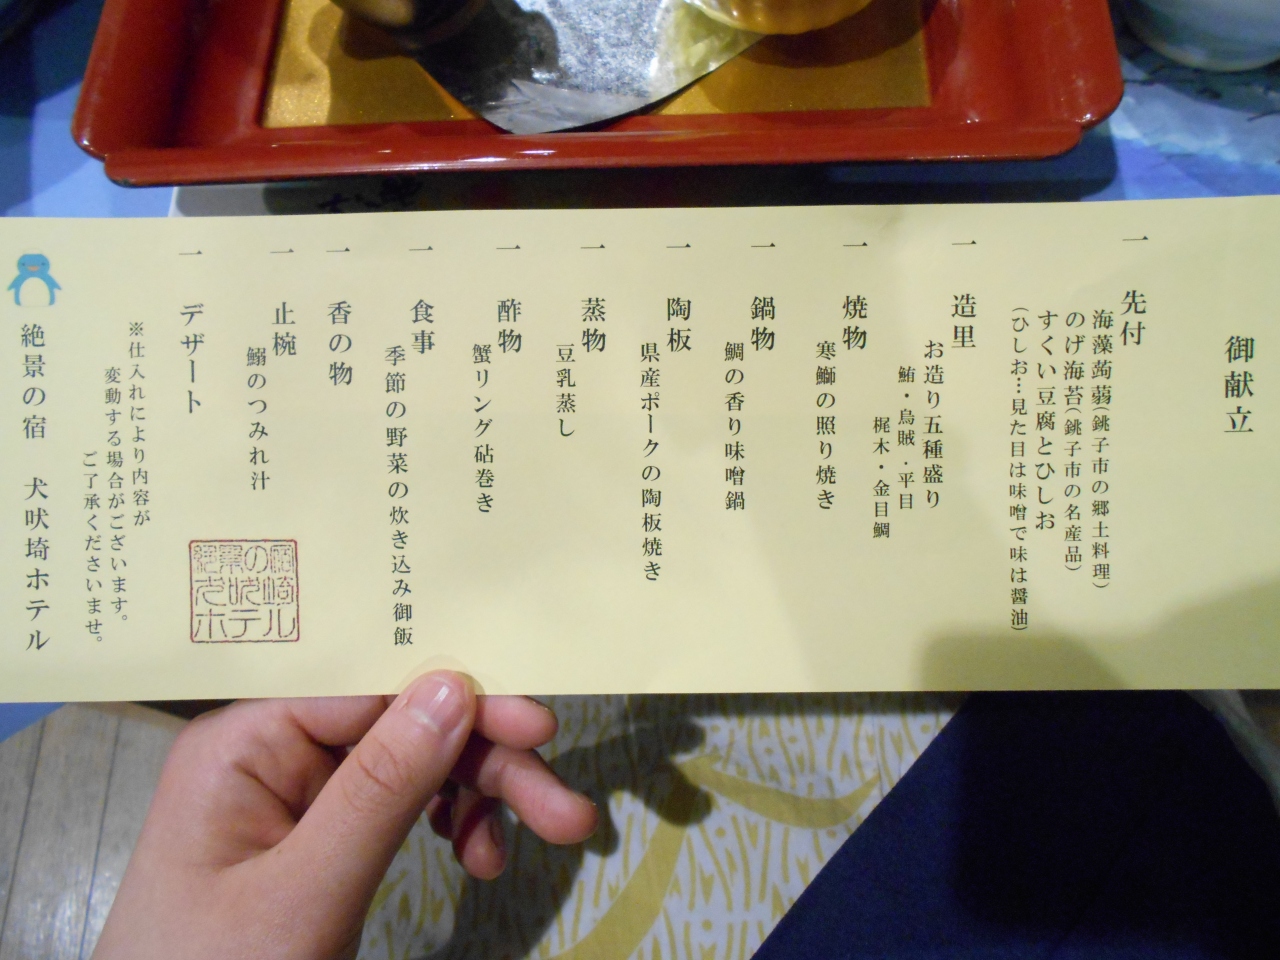 御献立
一 先付
海藻蒟蒻(銚子市の郷土料理)
のげ海苔(銚子市の名産品)
すくい豆腐とひしお
(ひしお…見た目は味噌で味は醤油)
一 造里
お造り五種盛り
鮪・烏賊・平目
梶木・金目鯛
一 焼物
寒鰤の照り焼き
一 鍋物
鯛の香り味噌鍋
一 陶板
県産ポークの陶板焼き
一 蒸物
豆乳蒸し
一 酢物
蟹リング砧巻き
一 食事
季節の野菜の炊き込み御飯
一 香の物
一 止椀
鰯のつみれ汁
一 デザート
※仕入れにより内容が
変動する場合がございます。
ご了承くださいませ。
絶景の宿 犬吠埼ホテル
絶景の宿
犬吠埼
ホテル